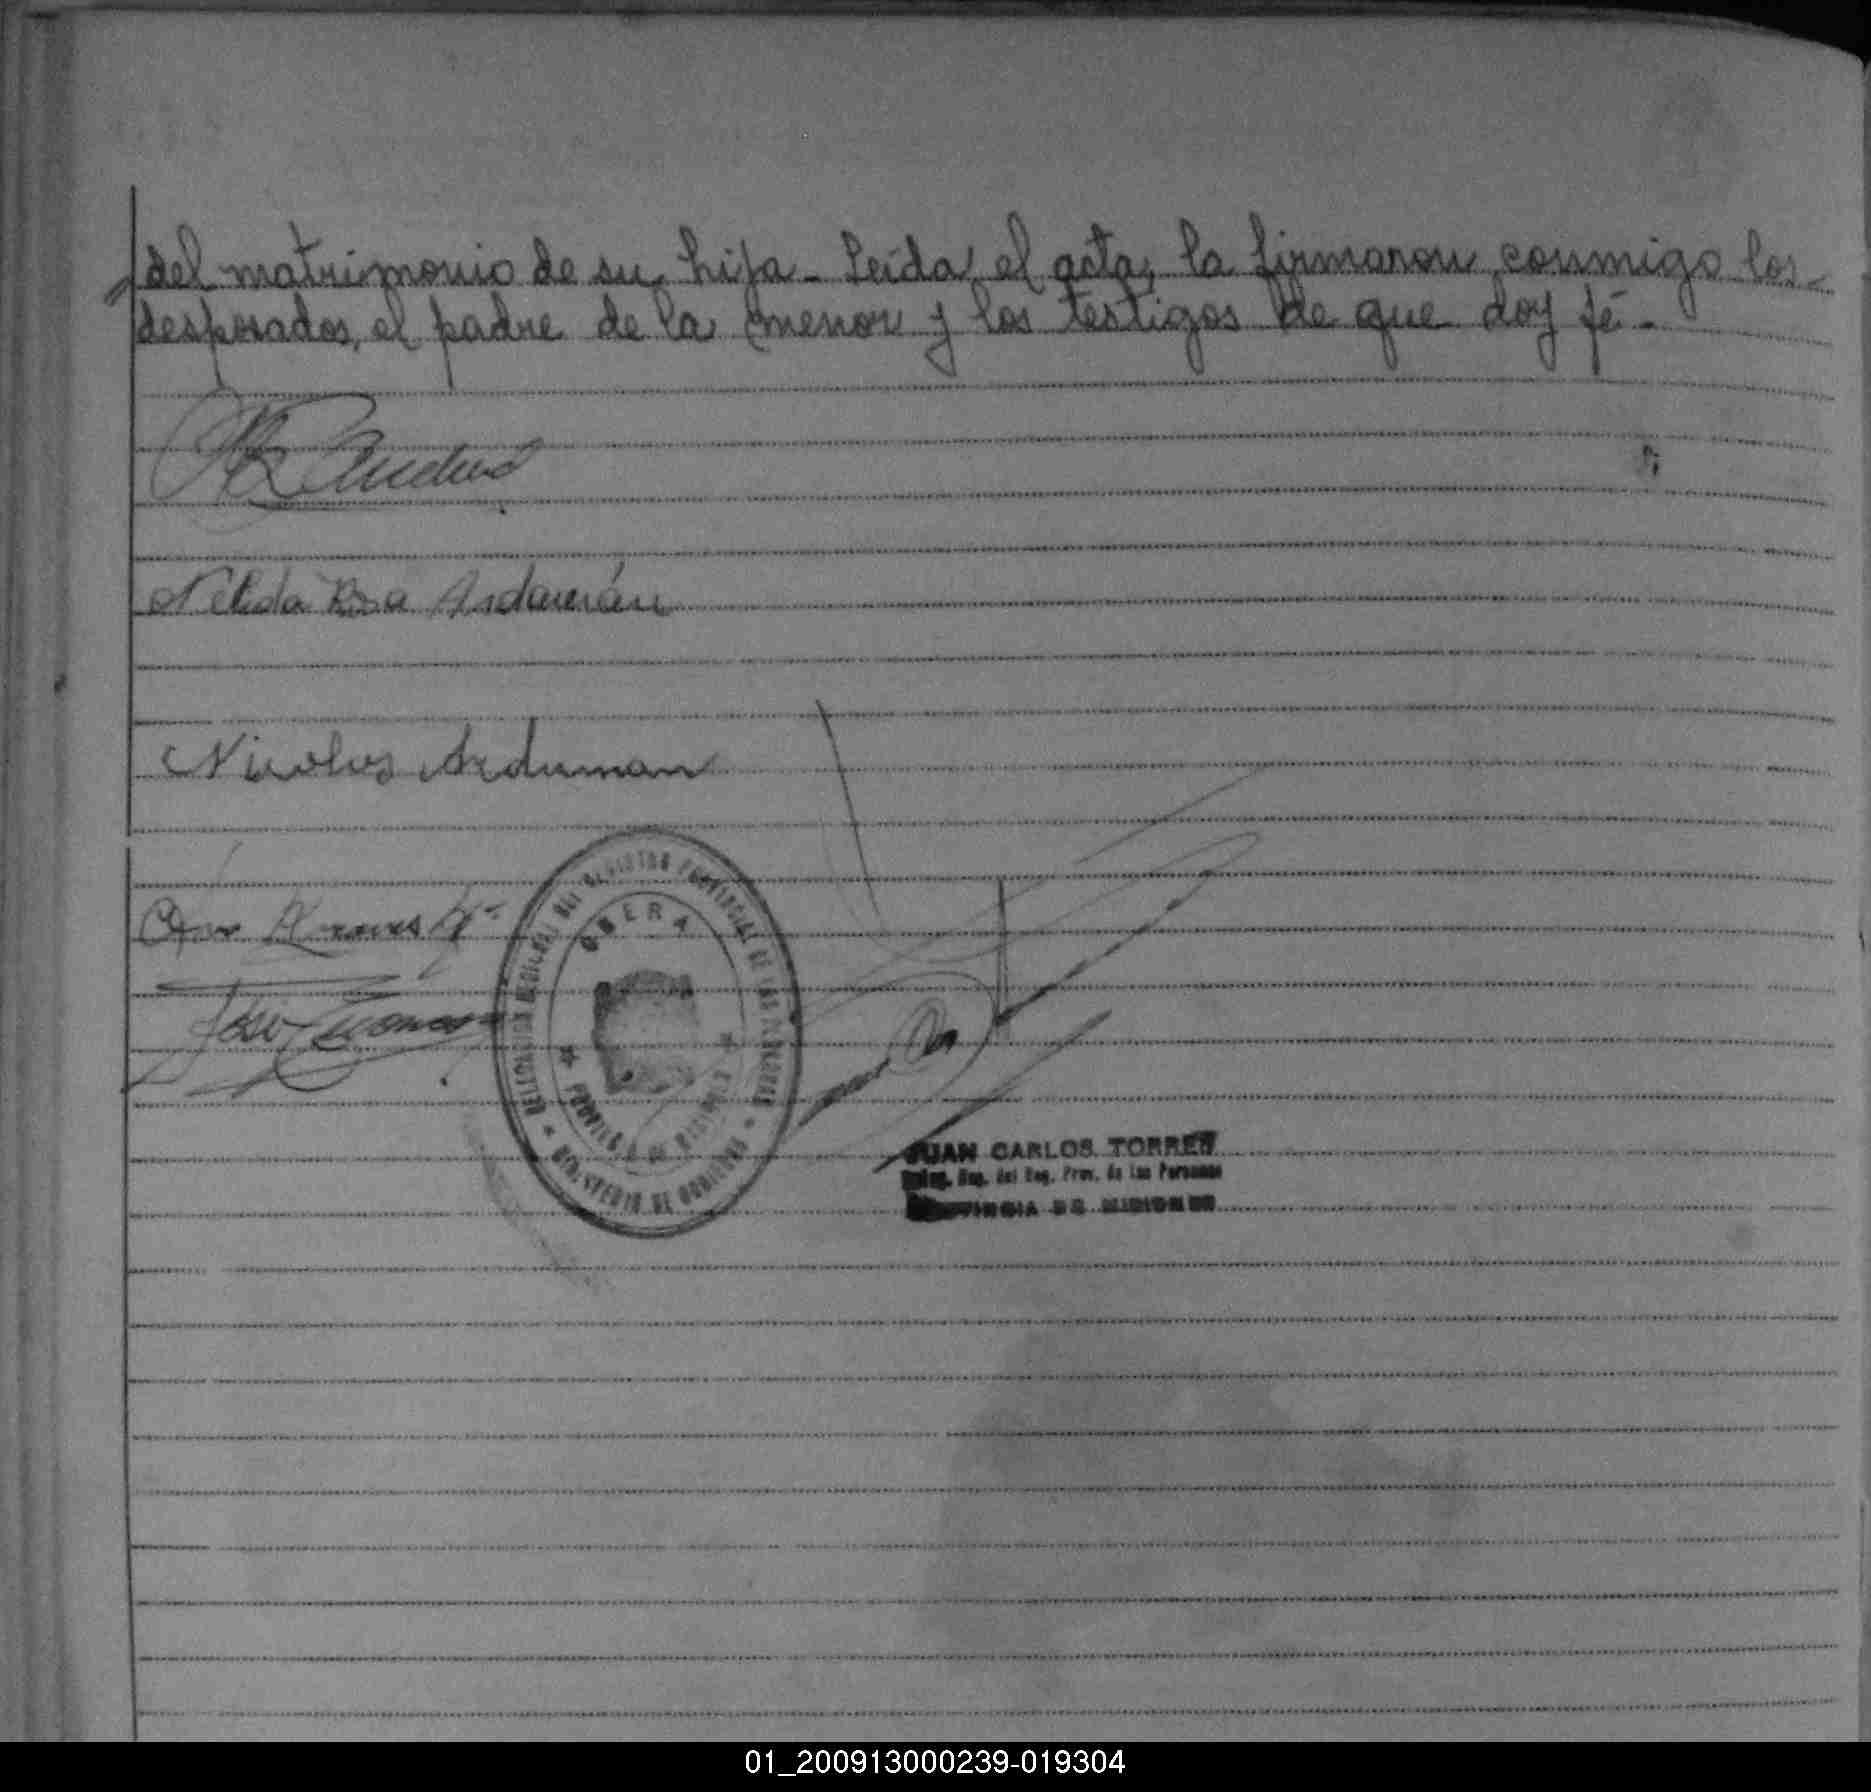 del matrimonio de su hija - Leída el acta, la firmaron conmigo los
desposados, el padre de la menor y los testigos de que doy fé -
Nelida Rosa
Nicolas Arduman
José
DELEGACION SECCIONAL DEL REGISTRO PROVINCIAL DE LAS PERSONAS
OBERA
PROVINCIA DE MISIONES
MINISTERIO DE GOBIERNO
JUAN CARLOS TORRES
Deleg. Sec. del Reg. Prov. de las Personas
PROVINCIA DE MISIONES
01_200913000239-019304